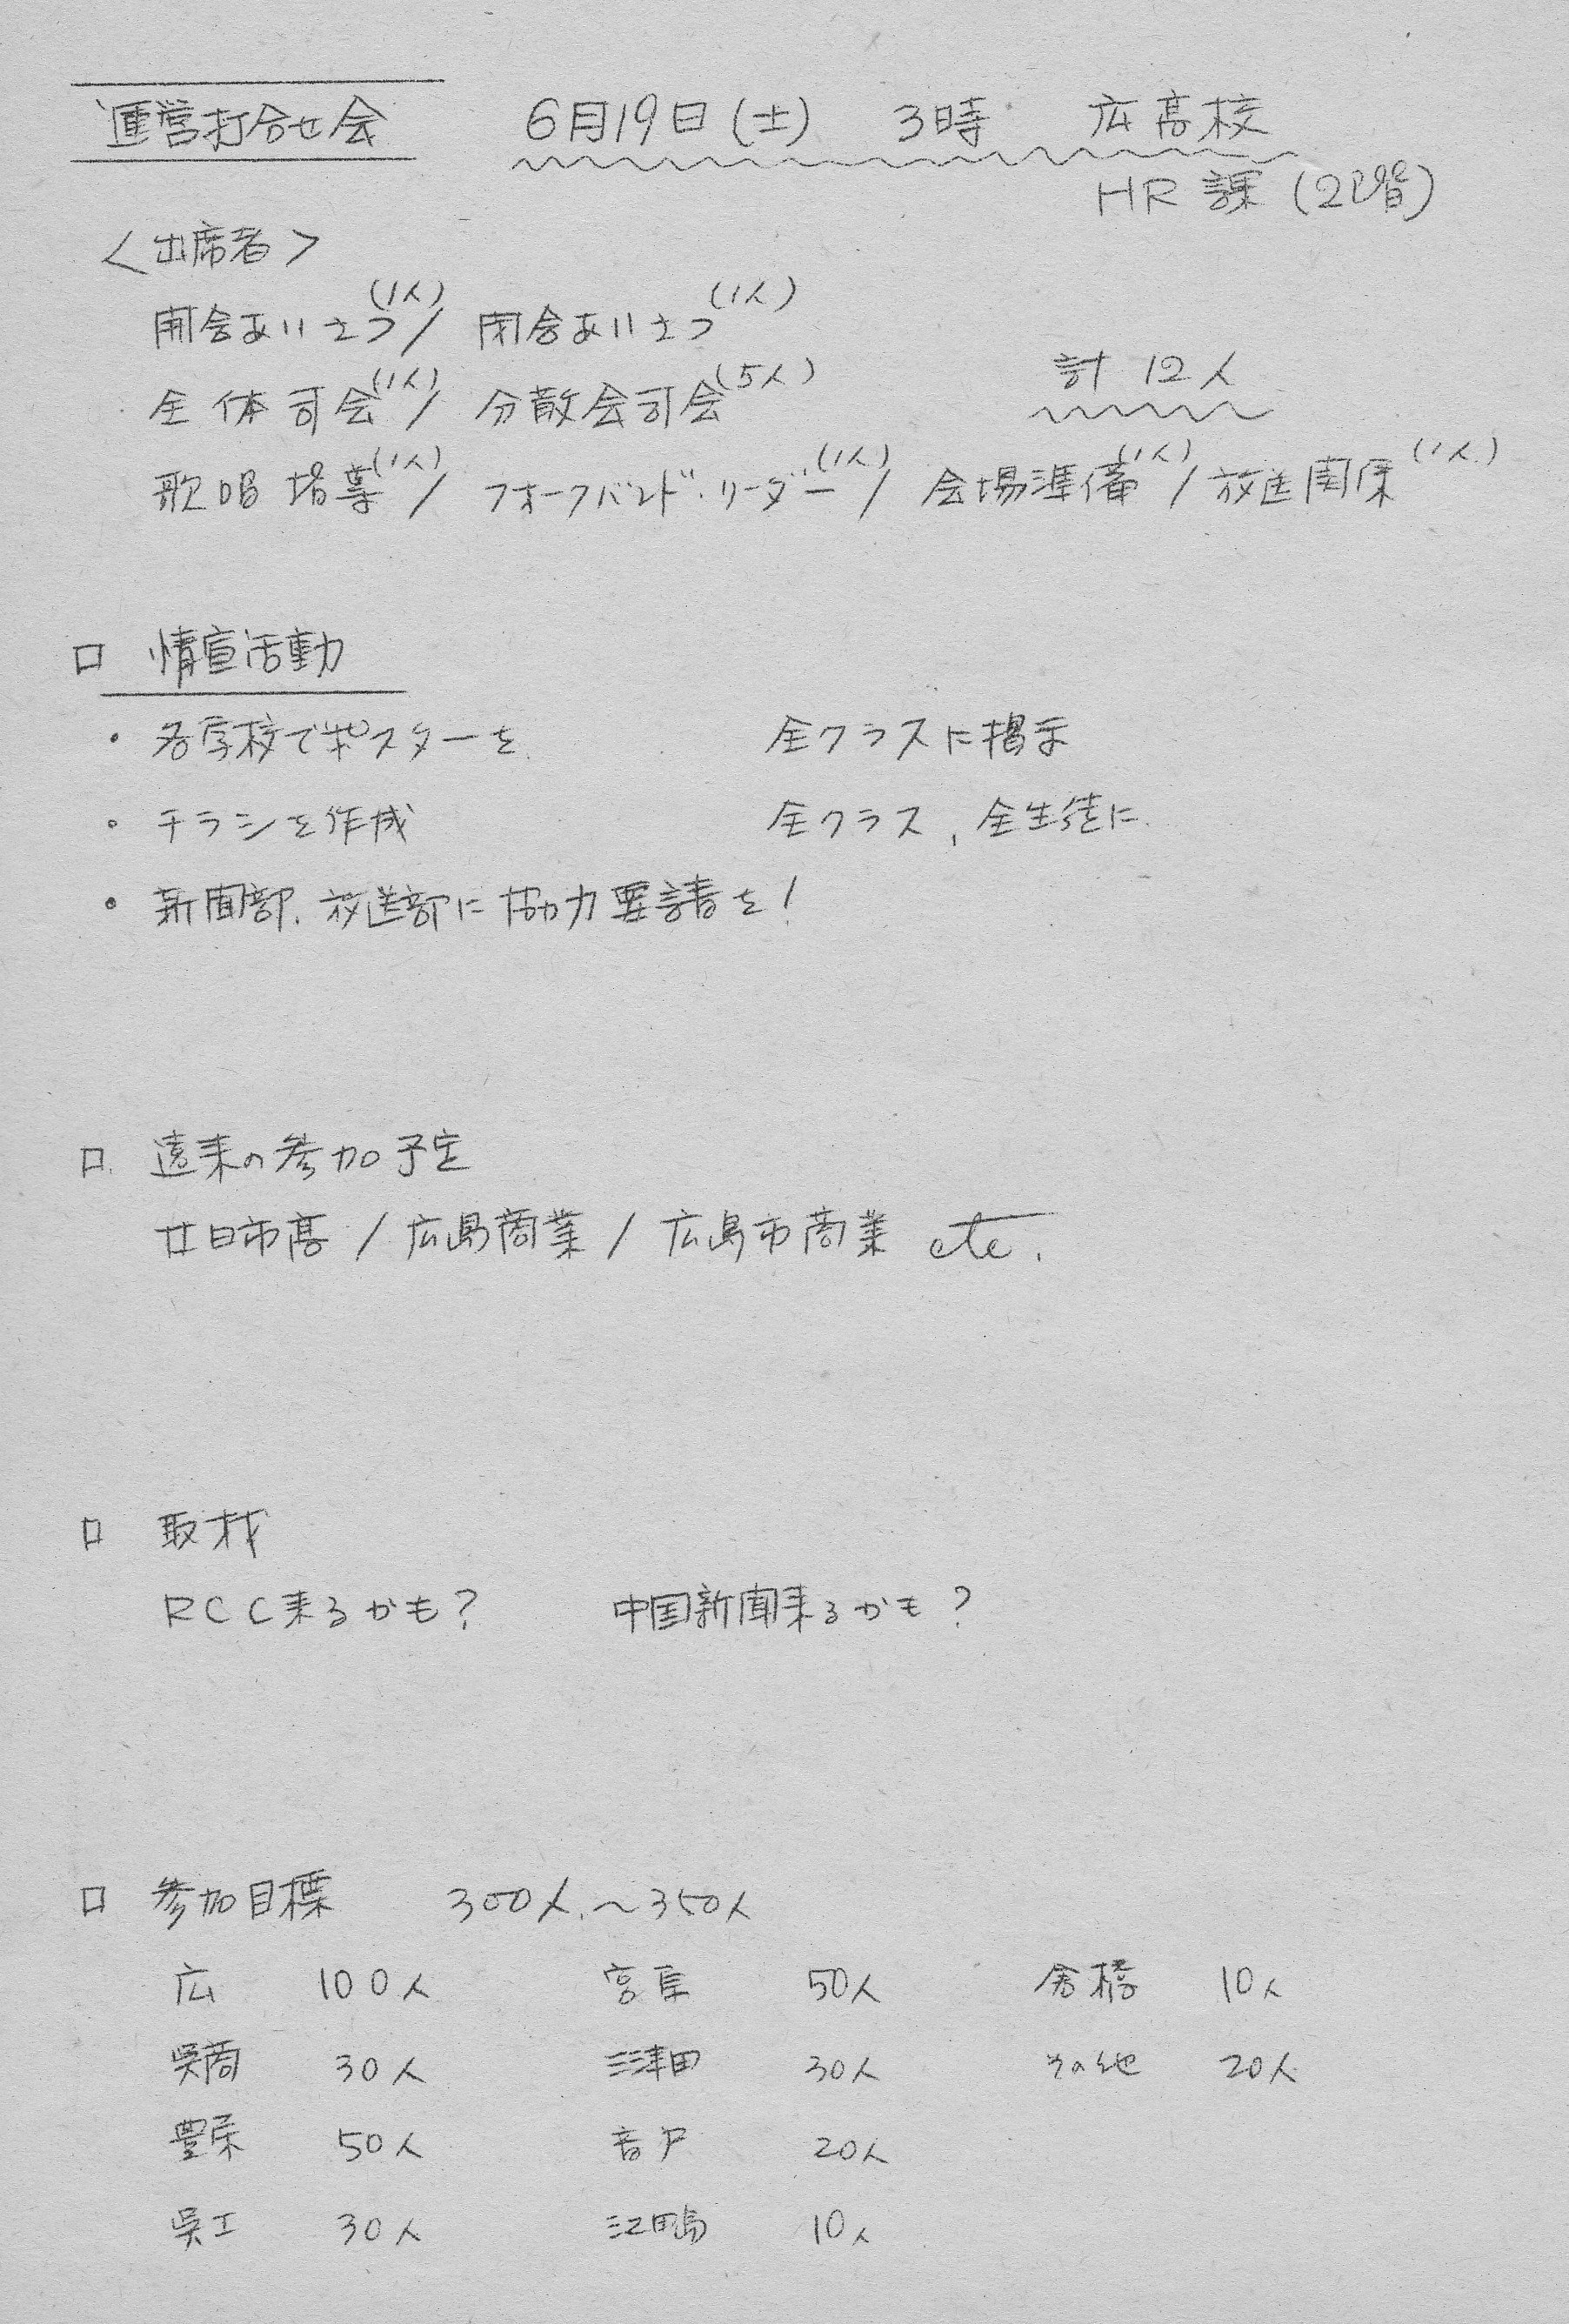 運営打合せ会 6月19日(土) 3時 広高校
HR課(2階)
<出席者>
開会あいさつ(1人)/ 閉会あいさつ(1人)
全体司会(1人)/ 分散会司会(5人) 計12人
歌唱指導(1人)/ フォークバンド・リーダー(1人)/ 会場準備(1人)/ 放送関係(1人)
□ 情宣活動
・各学校でポスターを 全クラスに掲示
・チラシを作成 全クラス、全生徒に
・新聞部、放送部に協力要請を!
□ 遠来の参加予定
廿日市高 / 広島商業 / 広島市商業 etc.
□ 取材
RCC来るかも? 中国新聞来るかも?
□ 参加目標 300人~350人
広 100人 宮原 50人 倉橋 10人
呉商 30人 三津田 30人 その他 20人
豊栄 50人 音戸 20人
呉工 30人 江田島 10人